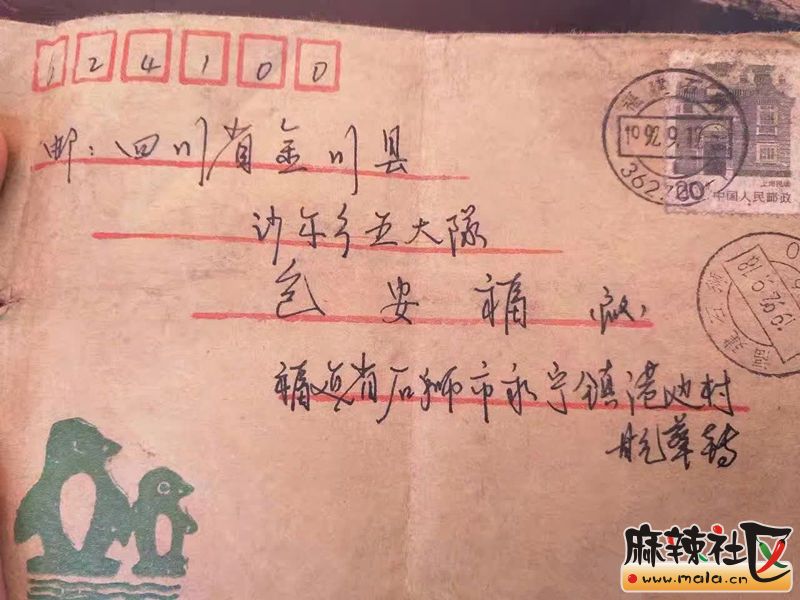 624100
邮：四川省金川县
沙尔乡五大队
包安福（收）
福建省石狮市永宁镇港边村
转
福建石狮
1992.9.1
362700
20分
上海民居
中国人民邮政
福建石
麻辣社区
www.mala.cn